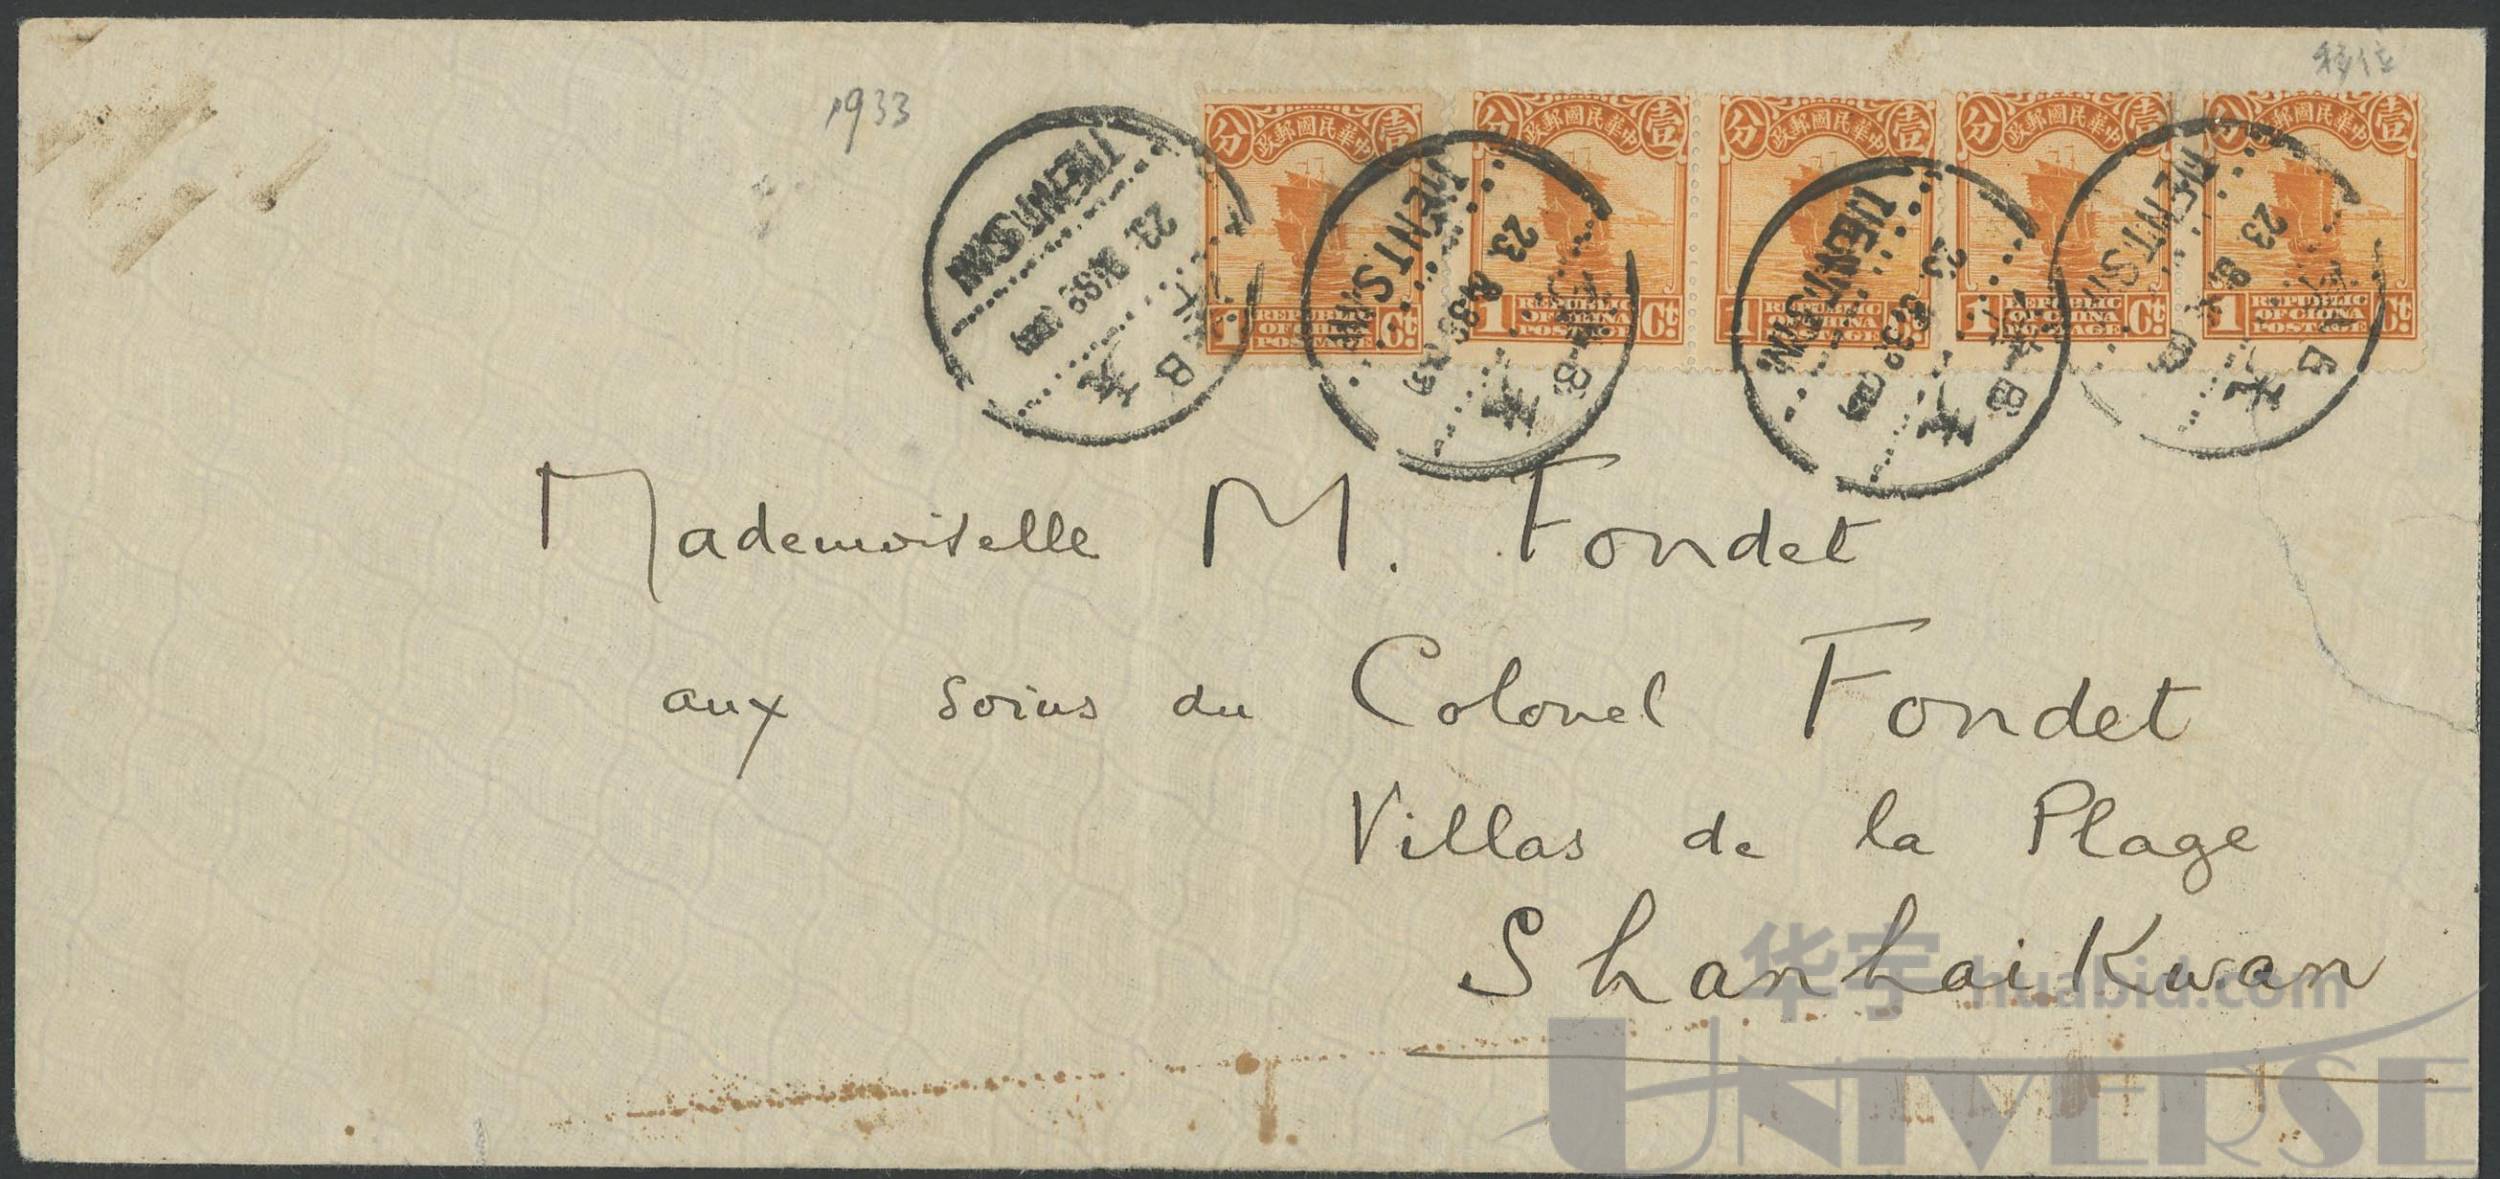 移位
1933
分 中華民國郵政 壹
分 中華民國郵政 壹
分 中華民國郵政 壹
分 中華民國郵政 壹
分 中華民國郵政 壹
1 REPUBLIC OF CHINA POSTAGE Ct.
1 REPUBLIC OF CHINA POSTAGE Ct.
1 REPUBLIC OF CHINA POSTAGE Ct.
1 REPUBLIC OF CHINA POSTAGE Ct.
1 REPUBLIC OF CHINA POSTAGE Ct.
TIENTSIN
23
天
B
TIENTSIN
23
天
B
TIENTSIN
23
天
B
TIENTSIN
23
B
Mademoiselle M. Fondet
aux soins du Colonel Fondet
Villas de la Plage
ShanhaiKwan
华宇 huabid.com
UNIVERSE